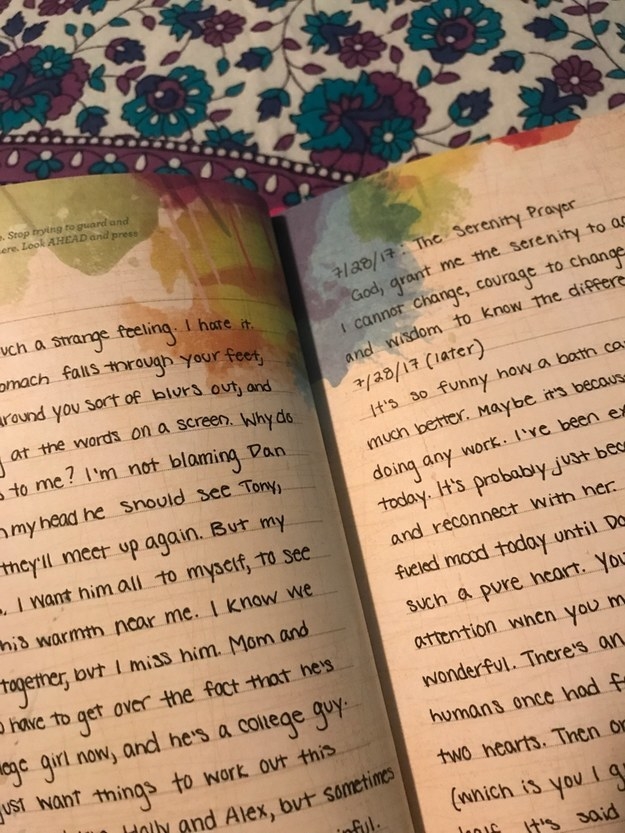 . Stop trying to guard and
ere. Look AHEAD and press
uch a strange feeling. I hate it.
omach falls through your feet,
around you sort of blurs out, and
at the words on a screen. Why do
to me? I'm not blaming Dan
my head he should see Tony,
they'll meet up again. But my
. I want him all to myself, to see
his warmth near me. I know we
together, but I miss him. Mom and
have to get over the fact that he's
lege girl now, and he's a college guy.
just want things to work out this
Holly and Alex, but sometimes
nful.
7/28/17: The Serenity Prayer
God, grant me the serenity to ac
I cannot change, courage to change
and wisdom to know the differe
7/28/17 (later)
It's so funny how a bath ca
much better. Maybe it's becaus
doing any work. I've been ex
today. It's probably just bec
and reconnect with her.
fueled mood today until Da
such a pure heart. You
attention when you m
wonderful. There's an
humans once had f
two hearts. Then on
(which is you I g
half. It's said